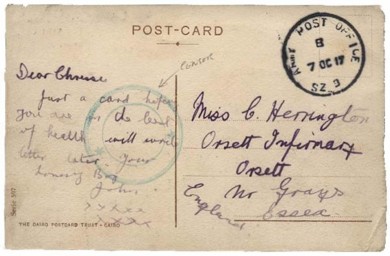 POST-CARD
ARMY POST OFFICE
B
7 OC 17
SZ 9
CENSOR
Dear Chrissie
Just a card hope
you are in the best
of health will write
letter later. Your
loving Boy
John.
xxxxx
xxxxx
Miss C. Herrington
Orsett Infirmary
Orsett
Nr Grays
Essex.
England
Serie 597
THE CAIRO POSTCARD TRUST - CAIRO